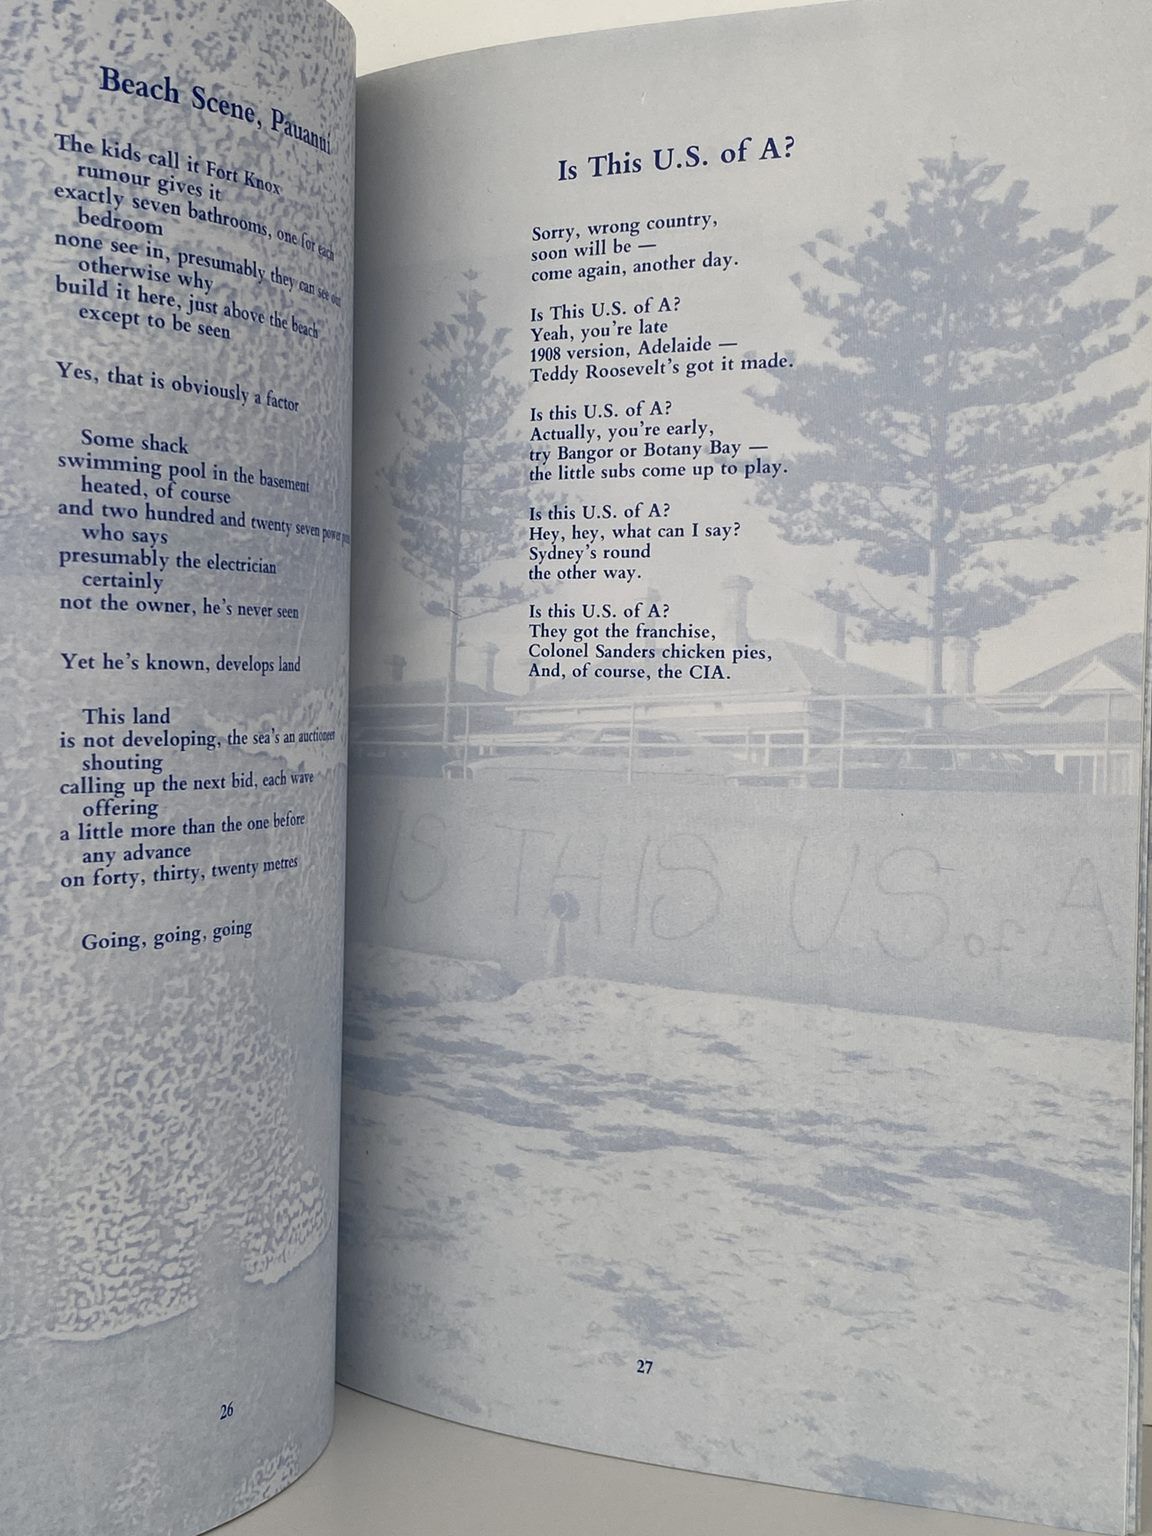 Beach Scene, Pauanui
The kids call it Fort Knox
rumour gives it
exactly seven bathrooms, one for each
bedroom
none see in, presumably they can see out
otherwise why
build it here, just above the beach
except to be seen
Yes, that is obviously a factor
Some shack
swimming pool in the basement
heated, of course
and two hundred and twenty seven power
who says
presumably the electrician
certainly
not the owner, he's never seen
Yet he's known, develops land
This land
is not developing, the sea's an auctioneer
shouting
calling up the next bid, each wave
offering
a little more than the one before
any advance
on forty, thirty, twenty metres
Going, going, going
26
Is This U.S. of A?
Sorry, wrong country,
soon will be —
come again, another day.
Is This U.S. of A?
Yeah, you're late
1908 version, Adelaide —
Teddy Roosevelt's got it made.
Is this U.S. of A?
Actually, you're early,
try Bangor or Botany Bay —
the little subs come up to play.
Is this U.S. of A?
Hey, hey, what can I say?
Sydney's round
the other way.
Is this U.S. of A?
They got the franchise,
Colonel Sanders chicken pies,
And, of course, the CIA.
IS THIS U.S. of A
27